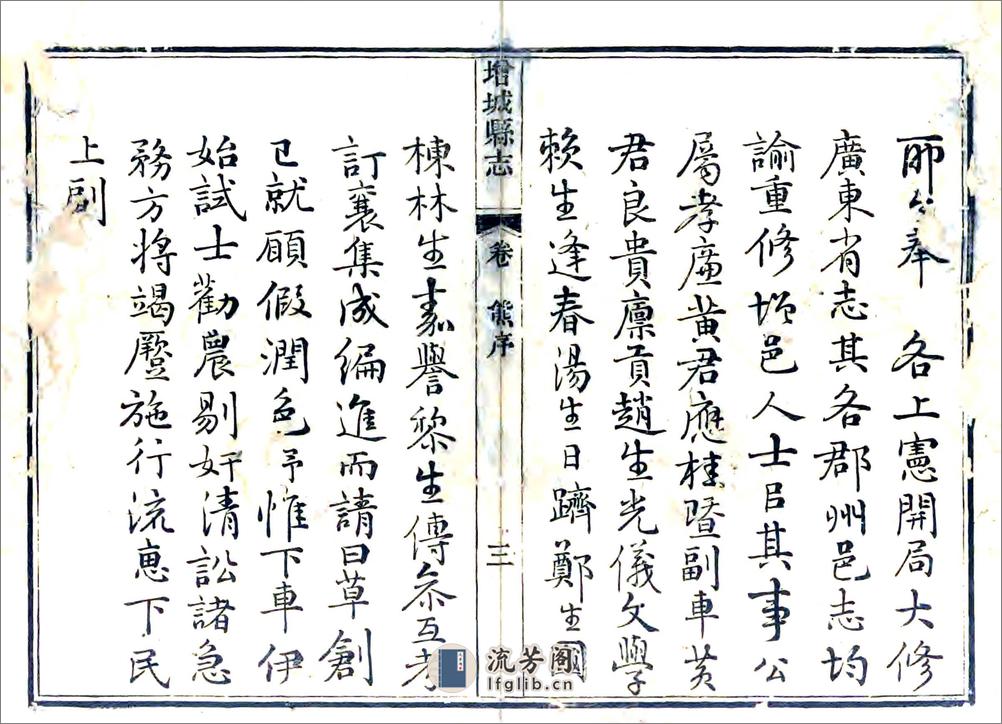 而今奉 各上憲開局大修
廣東省志其各郡州邑志均
諭重修增邑人士㠯其事公
屬孝廉黃君應桂暨副車黃
君良貴廩貢趙生光儀文學
賴生逢春湯生日躋鄭生國
增城縣志
卷 熊序
三
棟林生嘉譽黎生傳叅互考
訂襄集成編進而請曰草創
已就願假潤色予惟下車伊
始試士勸農剔奸清訟諸急
務方將竭蹷施行流惠下民
上副
流芳阁
lfglib.cn